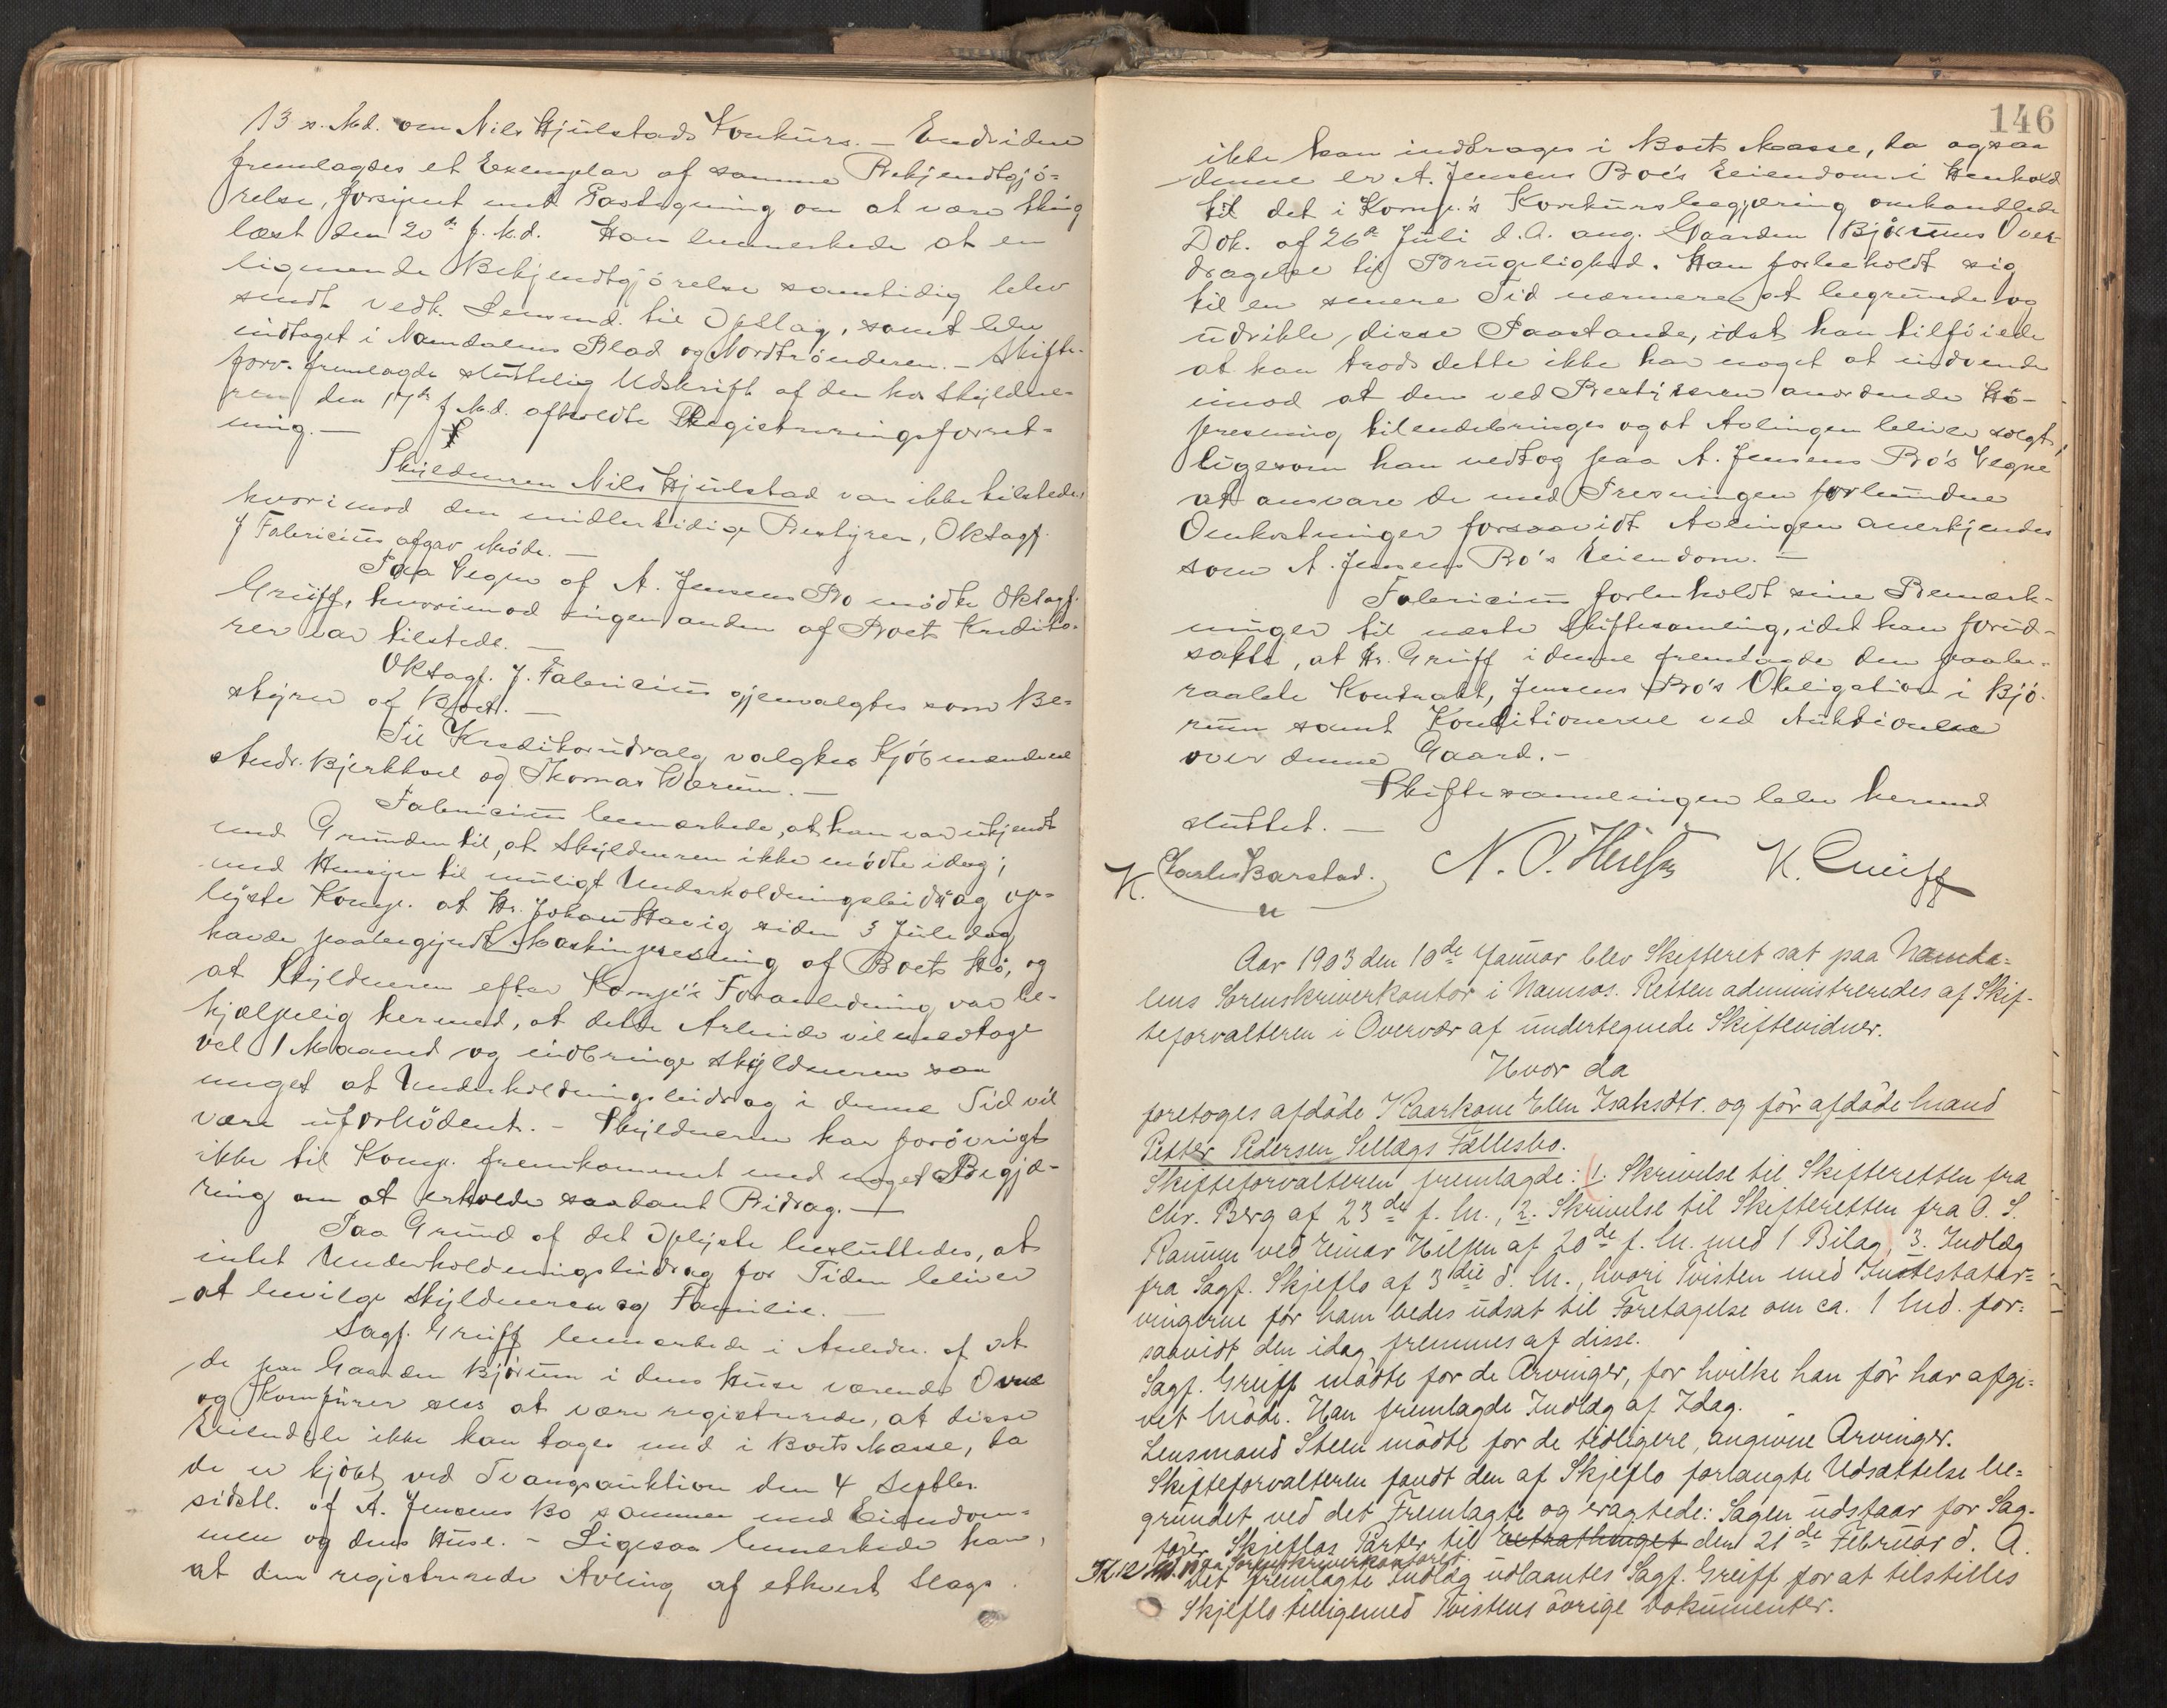 13 s. Md. om Nils Hjulstads Konkurs. — Endvidere
fremlagdes et Exemplar af samme Bekjendtgjö-
relse, forsynet med Paategning om at være thing
læst den 20de f. Md. Han bemerkede at en
lignende Bekjendtgjörelse samtidig blev
sendt vedk. Lensmd. til Opslag, samt blev
indtaget i Namdalens Blad og Nordtrönderen. — Skifte-
forv. fremlagde sluttelig Udskrift af den hos Skyldne-
ren den 17de f. Md. afholdte Registreringsforret-
ning. —
Skyldneren Nils Hjulstad var ikke tilstede,
hvorimod den midlertidige Bestyrer, Oktsagf.
J Fabricius afgav Möde. —
Paa Vegne af A. Jensens Bo mödte Oktsagf.
Greiff, hvorimod ingen anden af Boets Kredito-
rer var tilstede. —
Oktsagf. J. Fabricius gjenvalgtes som Be-
styrer af Boet. —
Til Kreditorudvalg valgtes Kjöbmændene
Andr. Bjerkhoel og Thomas Wærum. —
Fabricius bemærkede, at han var ukjendt
med Grunden til, at Skyldneren ikke mödte idag;
med Hensyn til muligt Underholdningsbidrag op-
lyste Komp. at Hr. Johan Havig siden 3 Juledag
havde paabegyndt Maskinpresning af Boets Hö, og
at Skyldneren efter Komp's Foranledning var be-
hjælpelig hermed, at dette Arbeide vil medtage
vel 1 Maaned og indbringe Skyldneren saa
meget at Underholdningsbidrag i denne Tid vil
være ufornödent. — Skyldneren har forövrigt
ikke til Komp. fremkommet med noget Begjæ-
ring om at erholde saadant Bidrag. —
Paa Grund af det Oplyste besluttedes, at
intet Underholdningsbidrag for Tiden bliver
at bevilge Skyldneren og Familie. —
Sagf. Greiff bemærkede i Anledn. af at
de paa Gaarden Björum i dens Huse værende Ovne
og Komfurer sees at være registrerede, at disse
Eiendele ikke kan tages med i Boets Masse, da
de er kjöbt ved Tvangsauktion den 4 Septbr.
sidstl. af A. Jensens Bo sammen med Eiendom-
men og dens Huse. — Ligesaa bemerkede han,
at den registrerede Avling af ethvert Slags
146
ikke kan inddrages i Boets Masse, da ogsaa
denne er A. Jensens Boe's Eiendom i Henhold
til det i Komp.'s Konkursbegjæring omhandlede
Dok. af 26de Juli d. A. ang. Gaarden Björums Over-
dragelse til Brugelighed. Han forbeholdt sig
til en senere Tid nærmere at begrunde og
udvikle disse Paastande, idet han tilföiede
at han trods dette ikke har noget at indvende
imod at den ved Bestyreren anordnede Hö-
presning tilendebringes og at Avlingen bliver solgt,
ligesom han vedtog paa A. Jensens Bo's Vegne
at ansvare de med Presningen forbundne
Omkostninger forsaavidt Avlingen anerkjendes
som A. Jensens Bo's Eiendom. —
Fabricius forbeholdt sine Bemærk-
ninger til næste Skiftesamling, idet han forud-
satte, at Hr. Greiff i denne fremlagde den paabe-
raabte Kontrakt, Jensens Bo's Obligation i Bjö-
rum samt Konditionerne ved Auktionen
over denne Gaard. —
Skiftesamlingen blev hermed
sluttet. —
Charles Barstad. N. O. K. Greiff
K.
Aar 1903 den 10de Januar blev Skifteret sat paa Namda-
lens Sorenskriverkontor i Namsos. Retten administreredes af Skif-
teforvalteren i Overvær af undertegnede Skiftevidner.
Hvor da
foretoges afdöde Kaarkone Ellen Isaksdtr. og för afdöde Mand
Petter Pedersen Sellægs Fællesbo.
Skifteforvalteren fremlagde: 1. Skrivelse til Skifteretten fra
Chr. Berg af 23de f. M., 2. Skrivelse til Skifteretten fra O. S.
Ranum ved Einar Nilsen af 20de f. M. med 1 Bilag, 3. Indlæg
fra Sagf. Skjeflo af 3die d. M., hvori Tvisten med Intestatar-
vingerne for ham bedes udsat til Foretagelse om ca. 1 Md. for-
saavidt den idag fremmes af disse.
Sagf. Greiff mödte for de Arvinger, for hvilke han för har afgi-
vet Möde. Han fremlagde Indlæg af Idag.
Lensmand Steen mödte for de tidligere angivne Arvinger.
Skifteforvalteren fandt den af Skjeflo forlangte Udsættelse be-
grundet ved det Fremlagte og eragtede: Sagen udstaar for Sag-
förer Skjeflos Parter til Extrathinget den 21de Februar d. A.
Kl. 12 Md. paa Sorenskriverkontoret.
Det fremlagte Indlæg udlaantes Sagf. Greiff for at tilstilles
Skjeflo tilligemed Tvistens övrige Dokumenter.